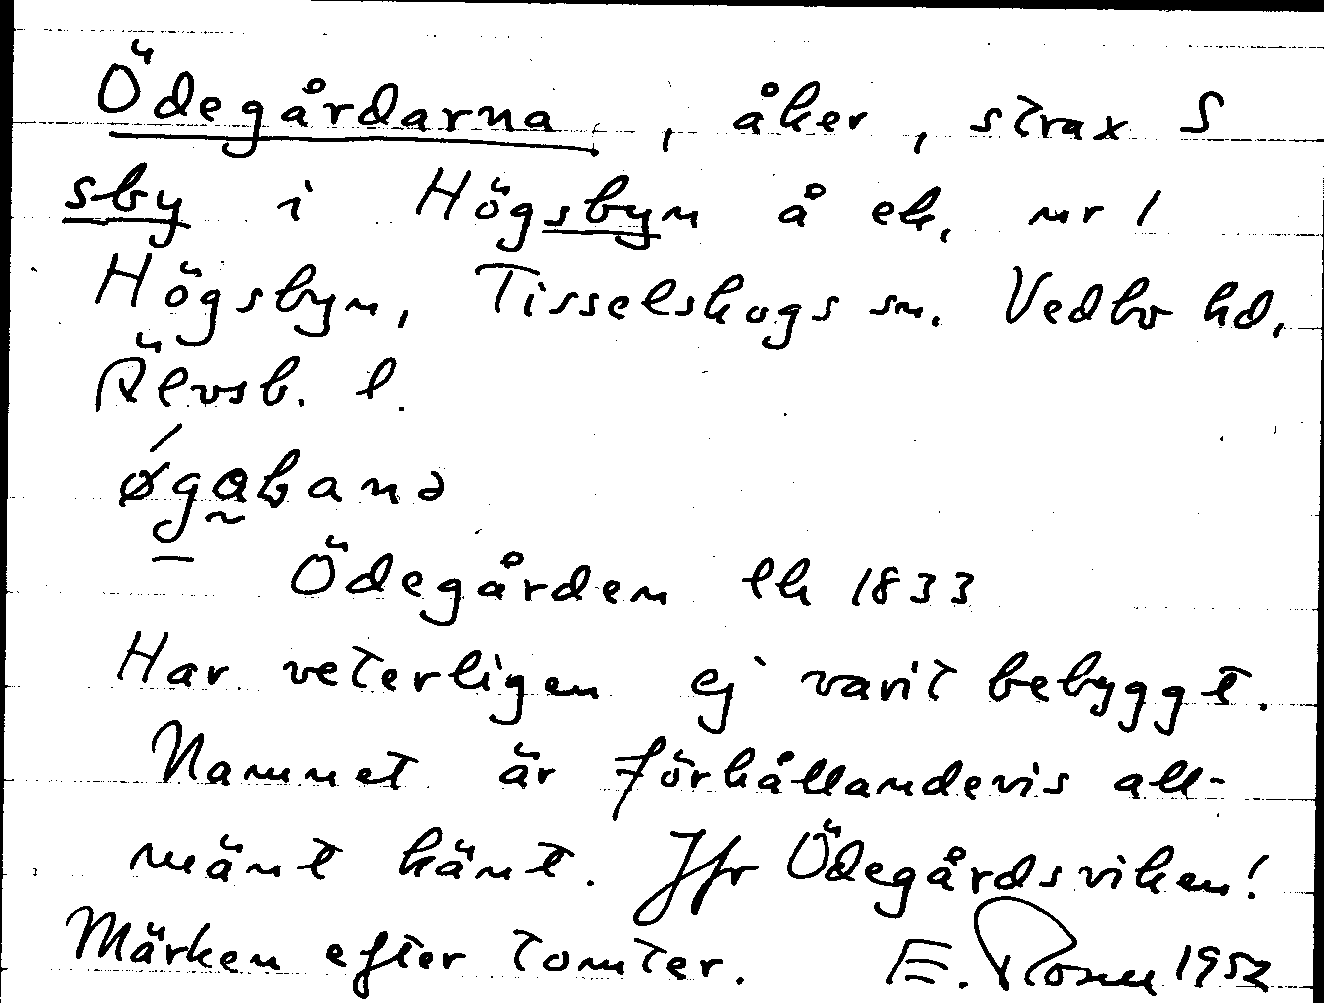 Ödegårdarna, åker, strax S
sby i Högsbyn å ek. nr 1
Högsbyn, Tisselskogs sn. Vedbo hd.
Älvsb. l.
Ödegården lk 1833
Har veterligen ej varit bebyggt.
Namnet är förhållandevis all-
mänt känt. Jfr Ödegårdsviken!
Märken efter tomter. E. Rosell 1952